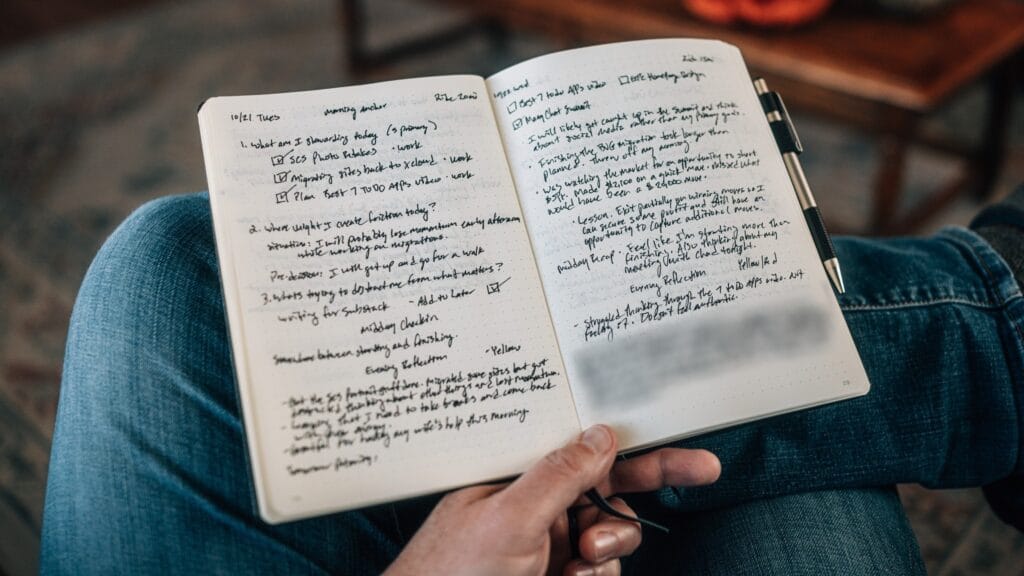 10/21 Tues morning anchor
1. What am I standing today (3 primary)
SCS Photo Intakes · work
Migrating sites back to xCloud · work
Plan Best 7 TO DO APPS video · work
2. Where might I create friction today?
situation: I will probably lose momentum early afternoon
while working on migrations.
Pre-decision: I will get up and go for a walk
3. What's trying to distract me from what matters?
writing for Substack - Add to later
Midday Checkin
Somewhere between standing and finishing.
Evening Reflection - Yellow
but
thinking about other things and lost momentum.
that I need to take breaks and come back
my wife's help this morning
Best 7 TODO APPS video
Homepage Design
Summit
I will likely get caught up in the Summit and think
about social media rather than my primary goals.
· Finishing the BIG migration took longer than
planned. Threw off my morning
· Was watching the market for an opportunity to short
made $2,100 on a quick move. Missed what
would have been a
· Lesson. Exit partially on winning moves so I
can secure some profit and still have an
opportunity to capture additional moves.
Midday Recap: Feel like I'm standing more than
finishing. Also thinking about my
meeting with Chad tonight.
Evening Reflection Yellow/Red
- Struggled thinking through the 7 TO DO APPS video. Not
feeling it. Doesn't feel authentic.